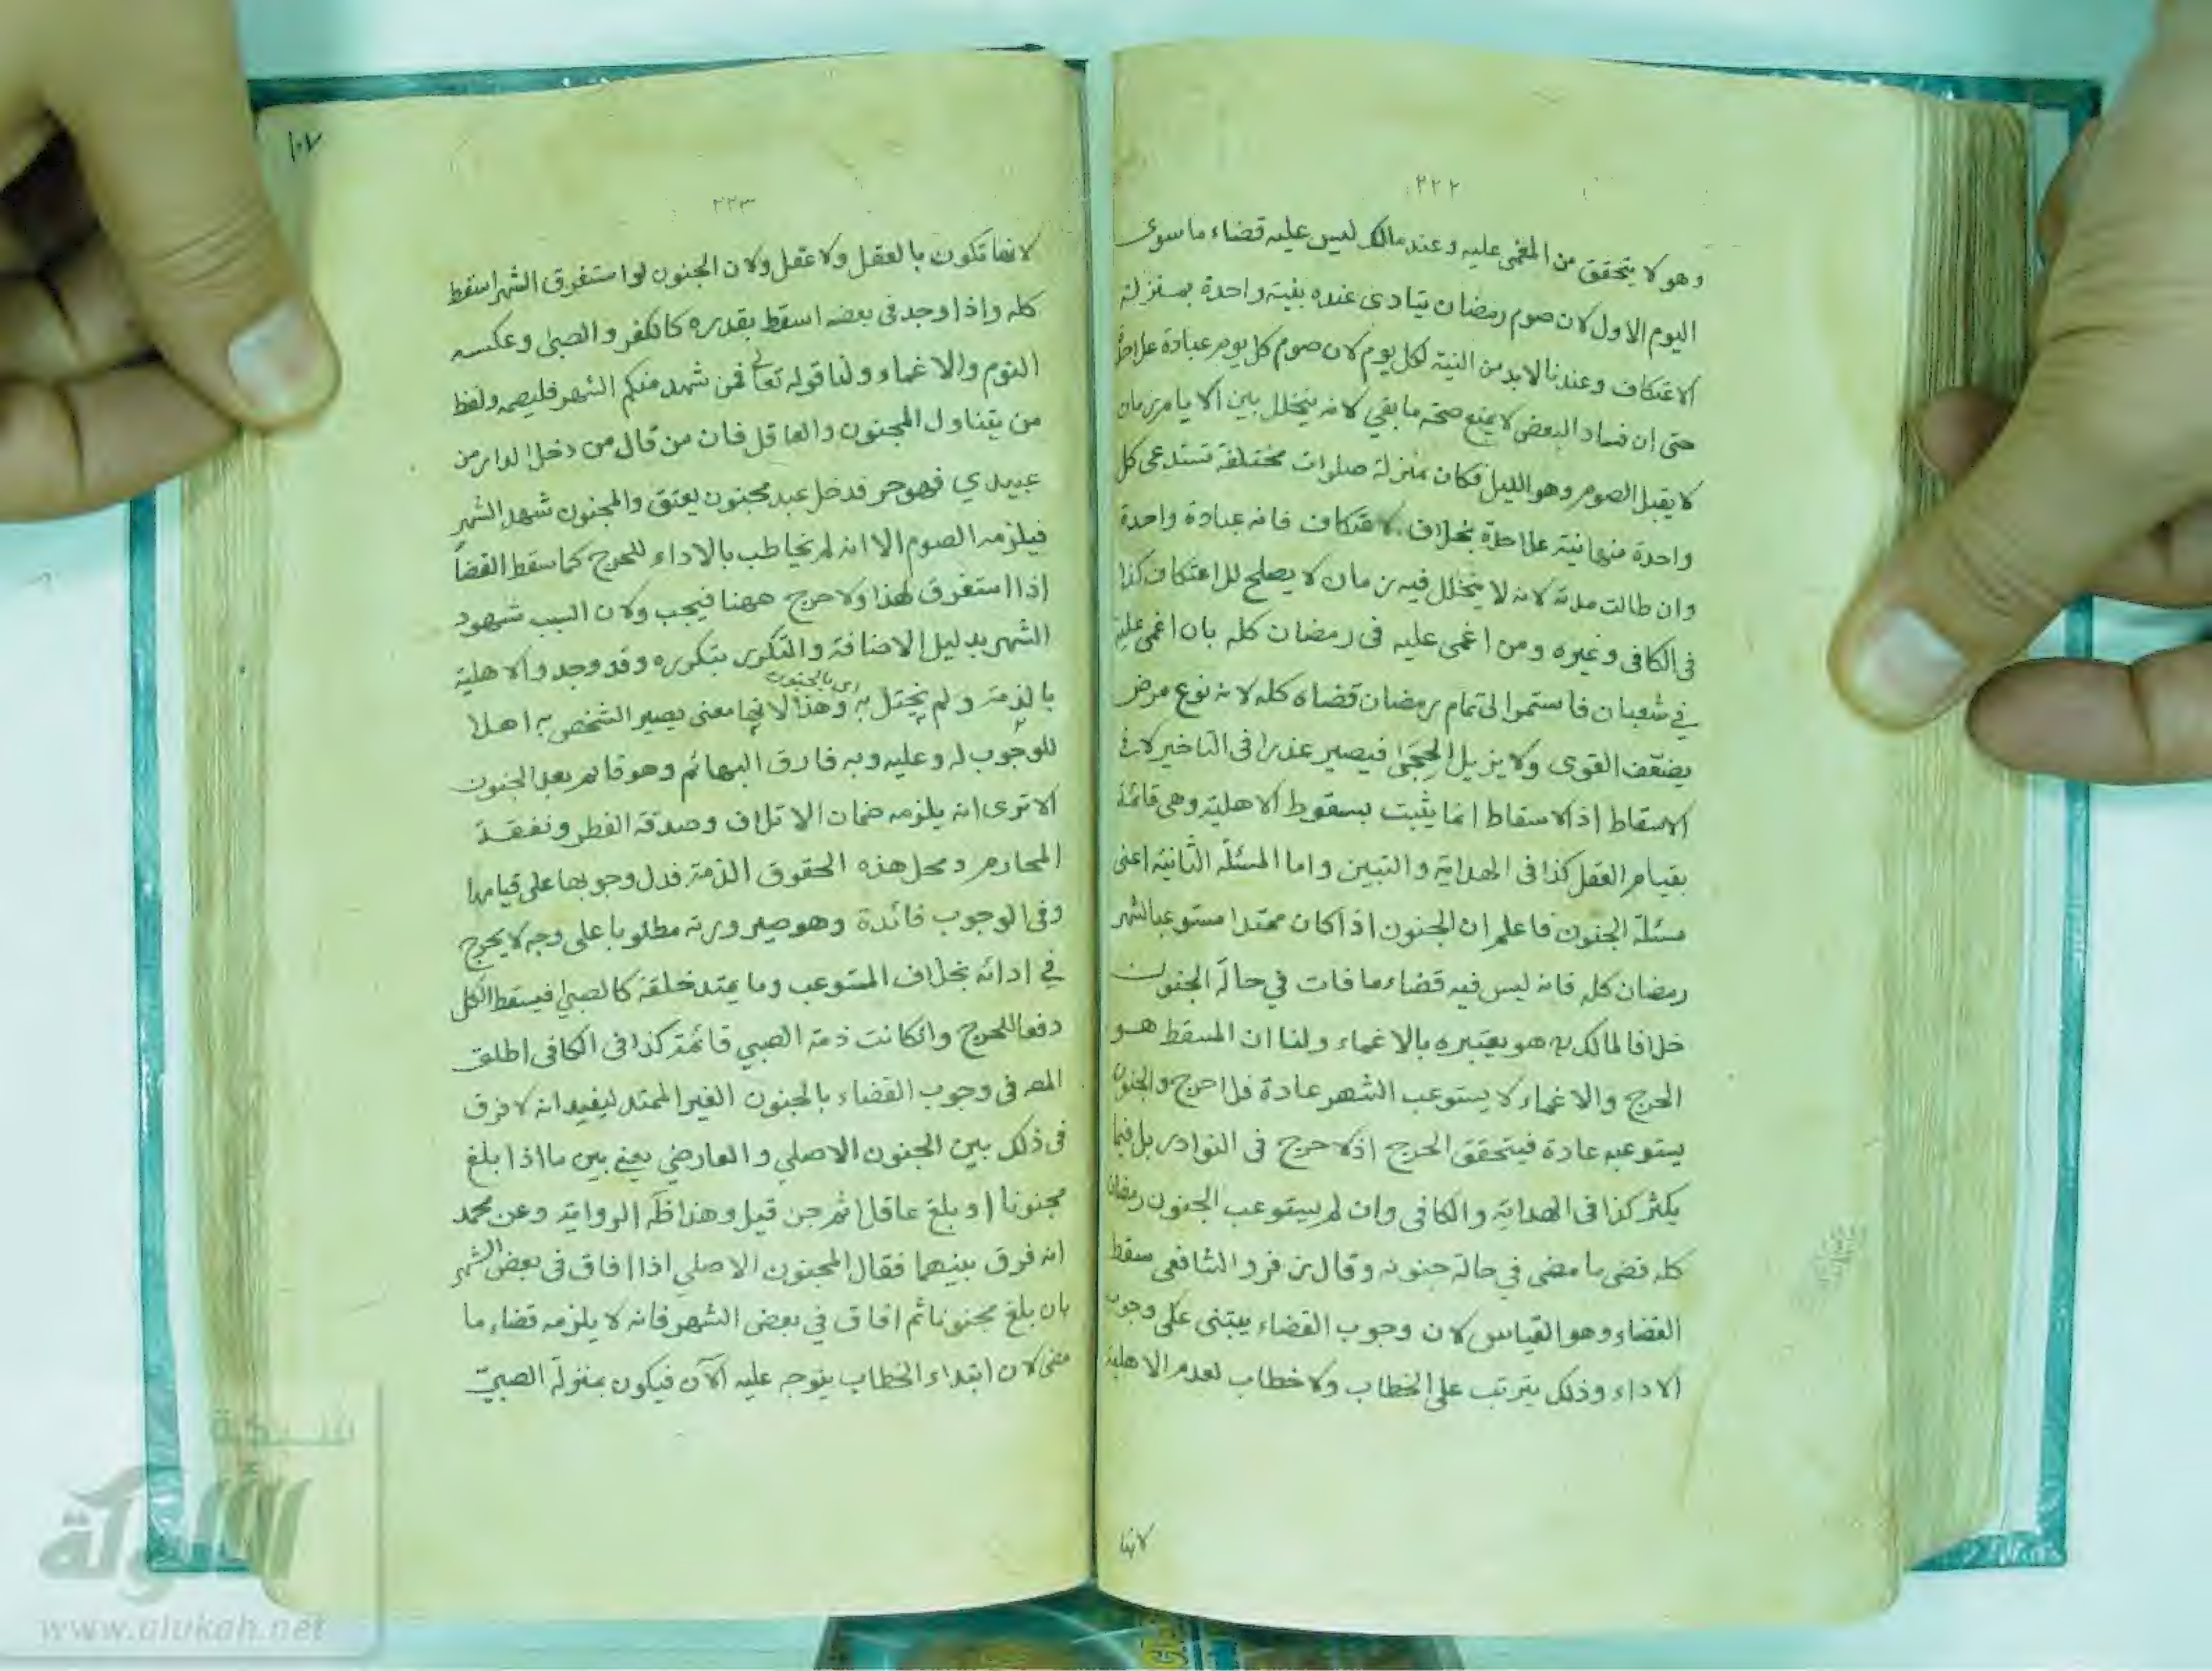 ٢٢٢
وهو لا يتحقق من المغمى عليه وعند مالك ليس عليه قضاء ما سوى
اليوم الاول لان صوم رمضان يتادى عنده بنية واحدة بمنزلة
الاعتكاف وعندنا لابد من النية لكل يوم لان صوم كل يوم عبادة علاحدة
حتى ان فساد البعض لا يمنع صحة ما بقي لانه يتخلل بين الايام زمان
لا يقبل الصوم وهو الليل فكان بمنزلة صلوات مختلفة تستدعى كل
واحدة منها نية علاحدة بخلاف الاعتكاف فانه عبادة واحدة
وان طالت مدته لانه لا يتخلل فيه زمان لا يصلح للاعتكاف كذا
فى الكافى وغيره ومن اغمى عليه فى رمضان كله بان اغمى عليه
في شعبان فاستمر الى تمام رمضان قضاه كله لانه نوع مرض
يضعف القوى ولا يزيل الحِجَىٰ فيصير عذرا فى التاخير لا في
الاسقاط اذ الاسقاط انما يثبت بسقوط الاهلية وهى قائمة
بقيام العقل كذا فى الهداية والتبين واما المسئلة الثانية اعنى
مسئلة الجنون فاعلم ان الجنون اذا كان ممتدا مستوعبا لشهر
رمضان كله فانه ليس فيه قضاء ما فات في حالة الجنون
خلافا لمالك هو يعتبره بالاغماء ولنا ان المسقط هو
الحرج والاغماء لا يستوعب الشهر عادة فلا حرج والجنون
يستوعبه عادة فيتحقق الحرج اذ لا حرج فى النوادر بل فيما
يكثر كذا فى الهداية والكافى وان لم يستوعب الجنون رمضان
كله قضى ما مضى في حالة جنونه وقال زفر والشافعى سقط
القضاء وهو القياس لان وجوب القضاء يبتنى على وجوب
الاداء وذلك يترتب على الخطاب ولا خطاب لعدم الاهلية
لانها
١٠٧
٢٢٣
لانها تكون بالعقل ولا عقل ولان الجنون لو استغرق الشهر اسقط
كله واذا وجد فى بعضه اسقط بقدره كالكفر والصبى وعكسه
النوم والاغماء ولنا قوله تعالى فمن شهد منكم الشهر فليصمه ولفظ
من يتناول المجنون والعاقل فان من قال من دخل الدار من
عبيدي فهو حر فدخل عبد مجنون يعتق والمجنون شهد الشهر
فيلزمه الصوم الا انه لم يخاطب بالاداء للحرج كما سقط القضاء
اذا استغرق لهذا ولا حرج ههنا فيجب ولان السبب شهود
الشهر بدليل الاضافة والتكرر بتكرره وقد وجد والاهلية
اى بالجنون
بالذمة ولم يختل به وهذا لانها معنى يصير الشخص به اهلا
للوجوب له وعليه وبه فارق البهائم وهو قائم بعد الجنون
الا ترى انه يلزمه ضمان الاتلاف وصدقة الفطر ونفقة
المحارم ومحل هذه الحقوق الذمة فدل وجوبها على قيامها
وفى الوجوب فائدة وهو صيرورته مطلوبا على وجه لا يحرج
في ادائه بخلاف المستوعب وما يمتد خلقة كالصبي فيسقط الكل
دفعا للحرج وان كانت ذمة الصبي قائمة كذا فى الكافى اطلق
المص فى وجوب القضاء بالجنون الغير الممتد ليفيد انه لا فرق
فى ذلك بين الجنون الاصلي والعارضي يعني بين ما اذا بلغ
مجنونا او بلغ عاقلا ثم جن قيل وهذا ظه الرواية وعن محمد
انه فرق بينهما فقال المجنون الاصلي اذا افاق فى بعض الشهر
بان بلغ مجنونا ثم افاق في بعض الشهر فانه لا يلزمه قضاء ما
مضى لان ابتداء الخطاب يتوجه عليه الآن فيكون بمنزلة الصبيّ
شبكة
الألوكة
www.alukah.net